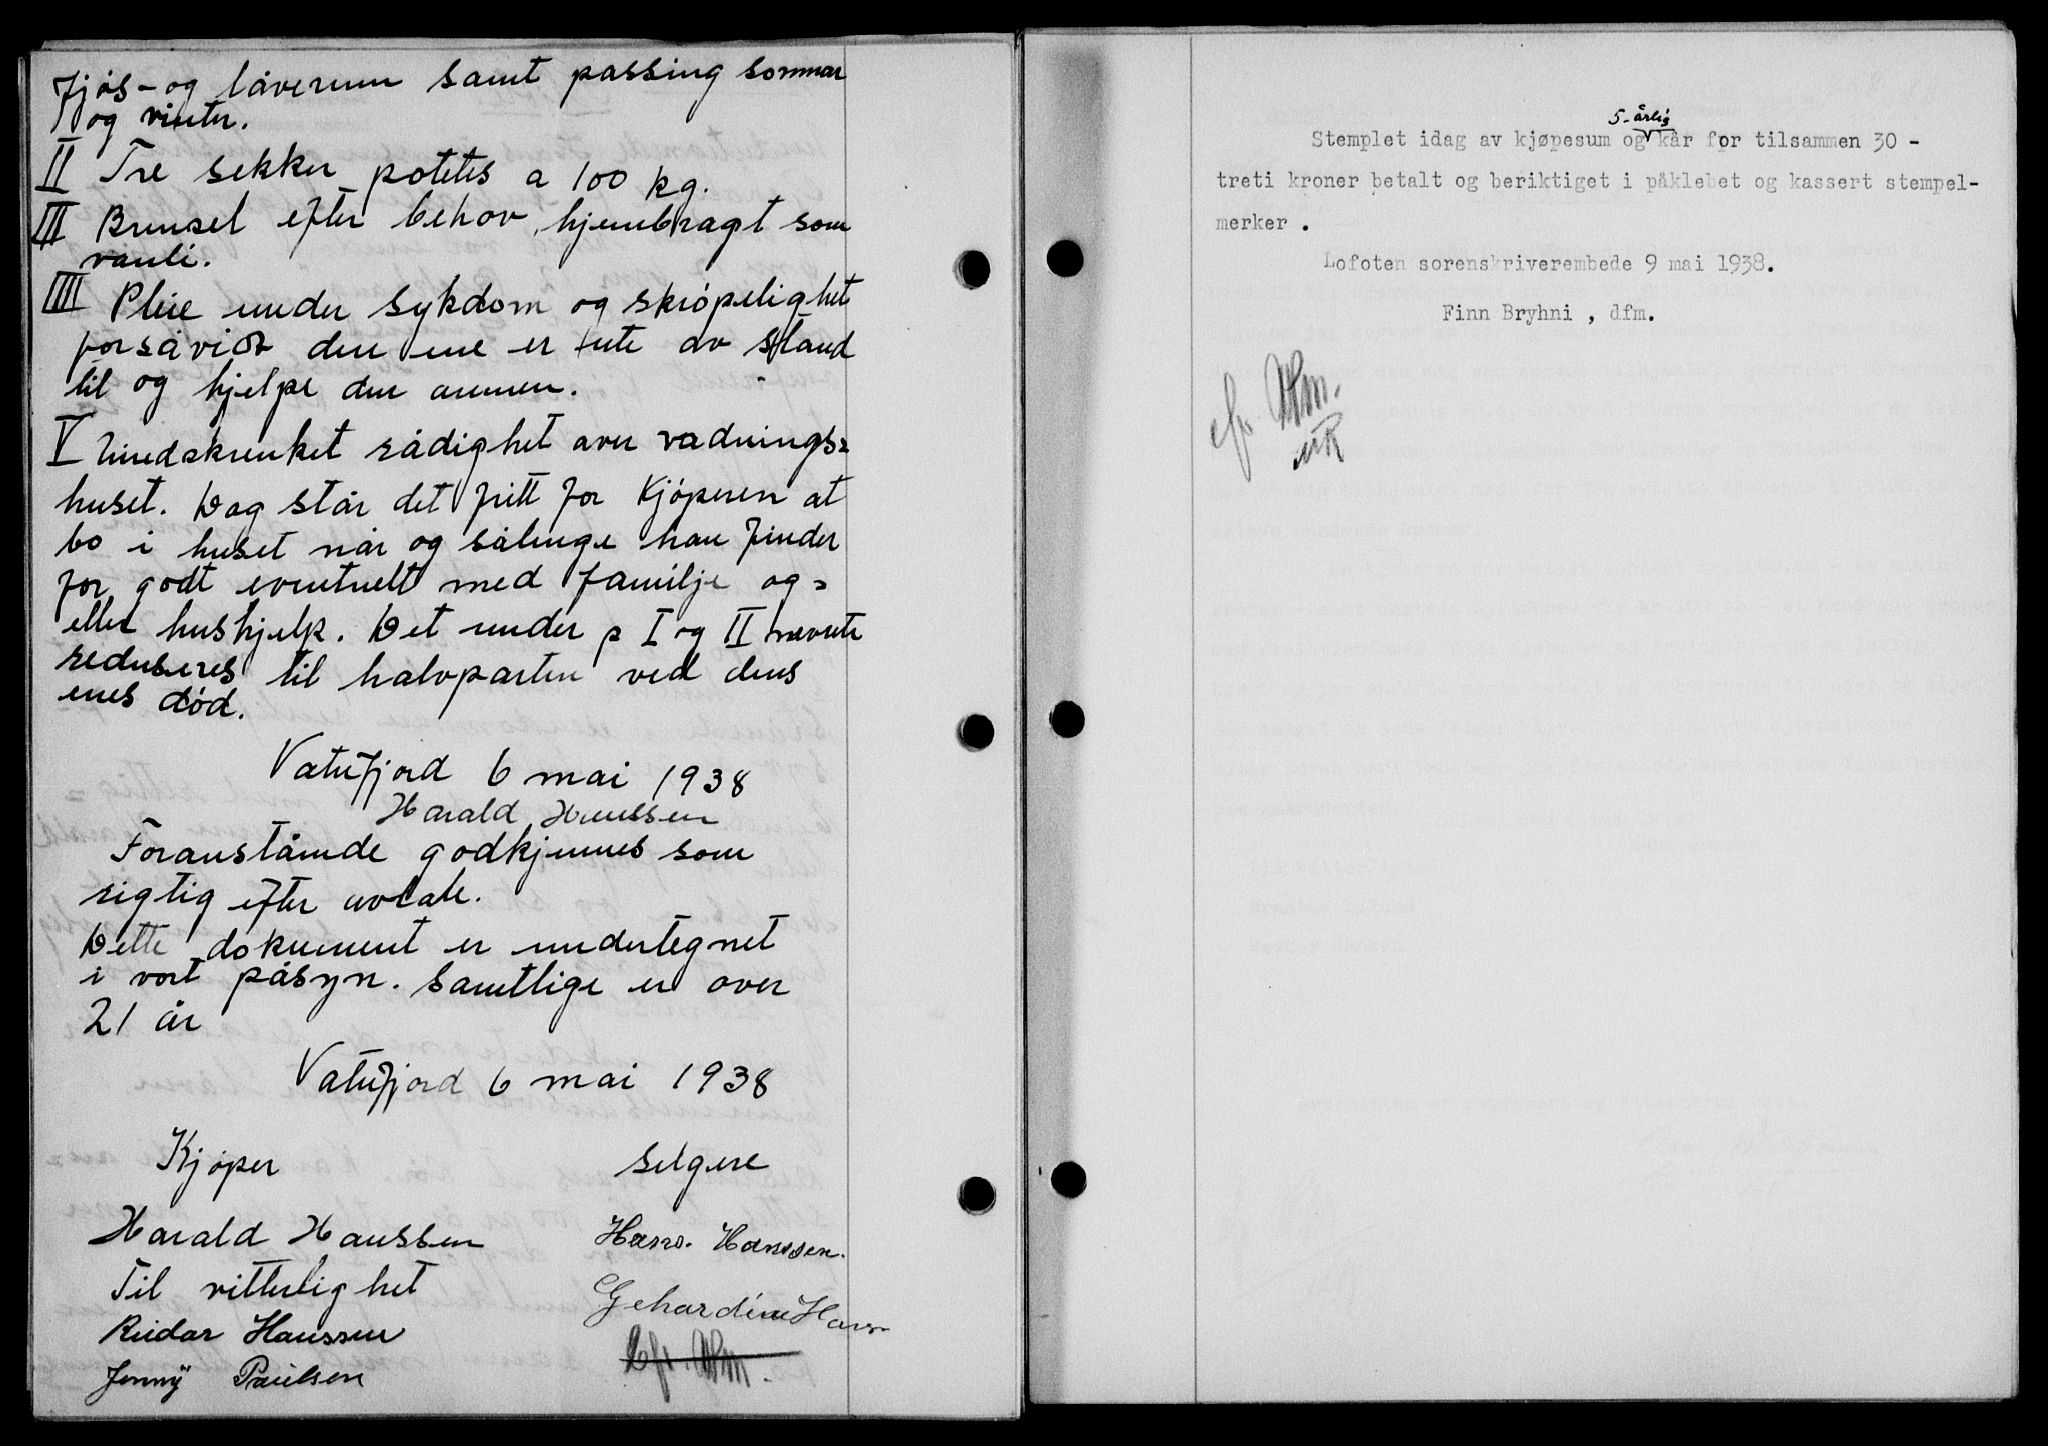 Fjøs- og låverum samt passing sommar
og vinter.
II Tre sekker potetes a 100 kg.
III Brensel efter behov, hjembragt som
vanli.
IIII Pleie under sykdom og skrøpelighet
forsåvidt den ene er ute av stand
til og hjelpe den annen.
V Uindskrenket rådighet over vadnings=
huset. Dog står det fritt for Kjøperen at
bo i huset når og sålenge han finder
for godt eventuelt med familje og=
eller hushjelp. Det under p I og II nevnte
reduseres til halvparten ved dens
enes død.
Vatnfjord 6 mai 1938
Harald Hanssen
Foranståënde godkjennes som
rigtig efter avtale.
Dette dokument er undertegnet
i vort påsyn. Samtlige er over
21 år
Vatnfjord 6 mai 1938
Kjøper selgere
Harald Hanssen Hans. Hanssen.
Til vitterlighet Gehardine Hans
Reidar Hanssen
Jenny Paulsen
5-årlig
Stemplet idag av kjøpesum og kår for tilsammen 30 -
treti kroner betalt og beriktiget i påklebet og kassert stempel-
merker .
Lofoten sorenskriverembede 9 mai 1938.
Finn Bryhni , dfm.